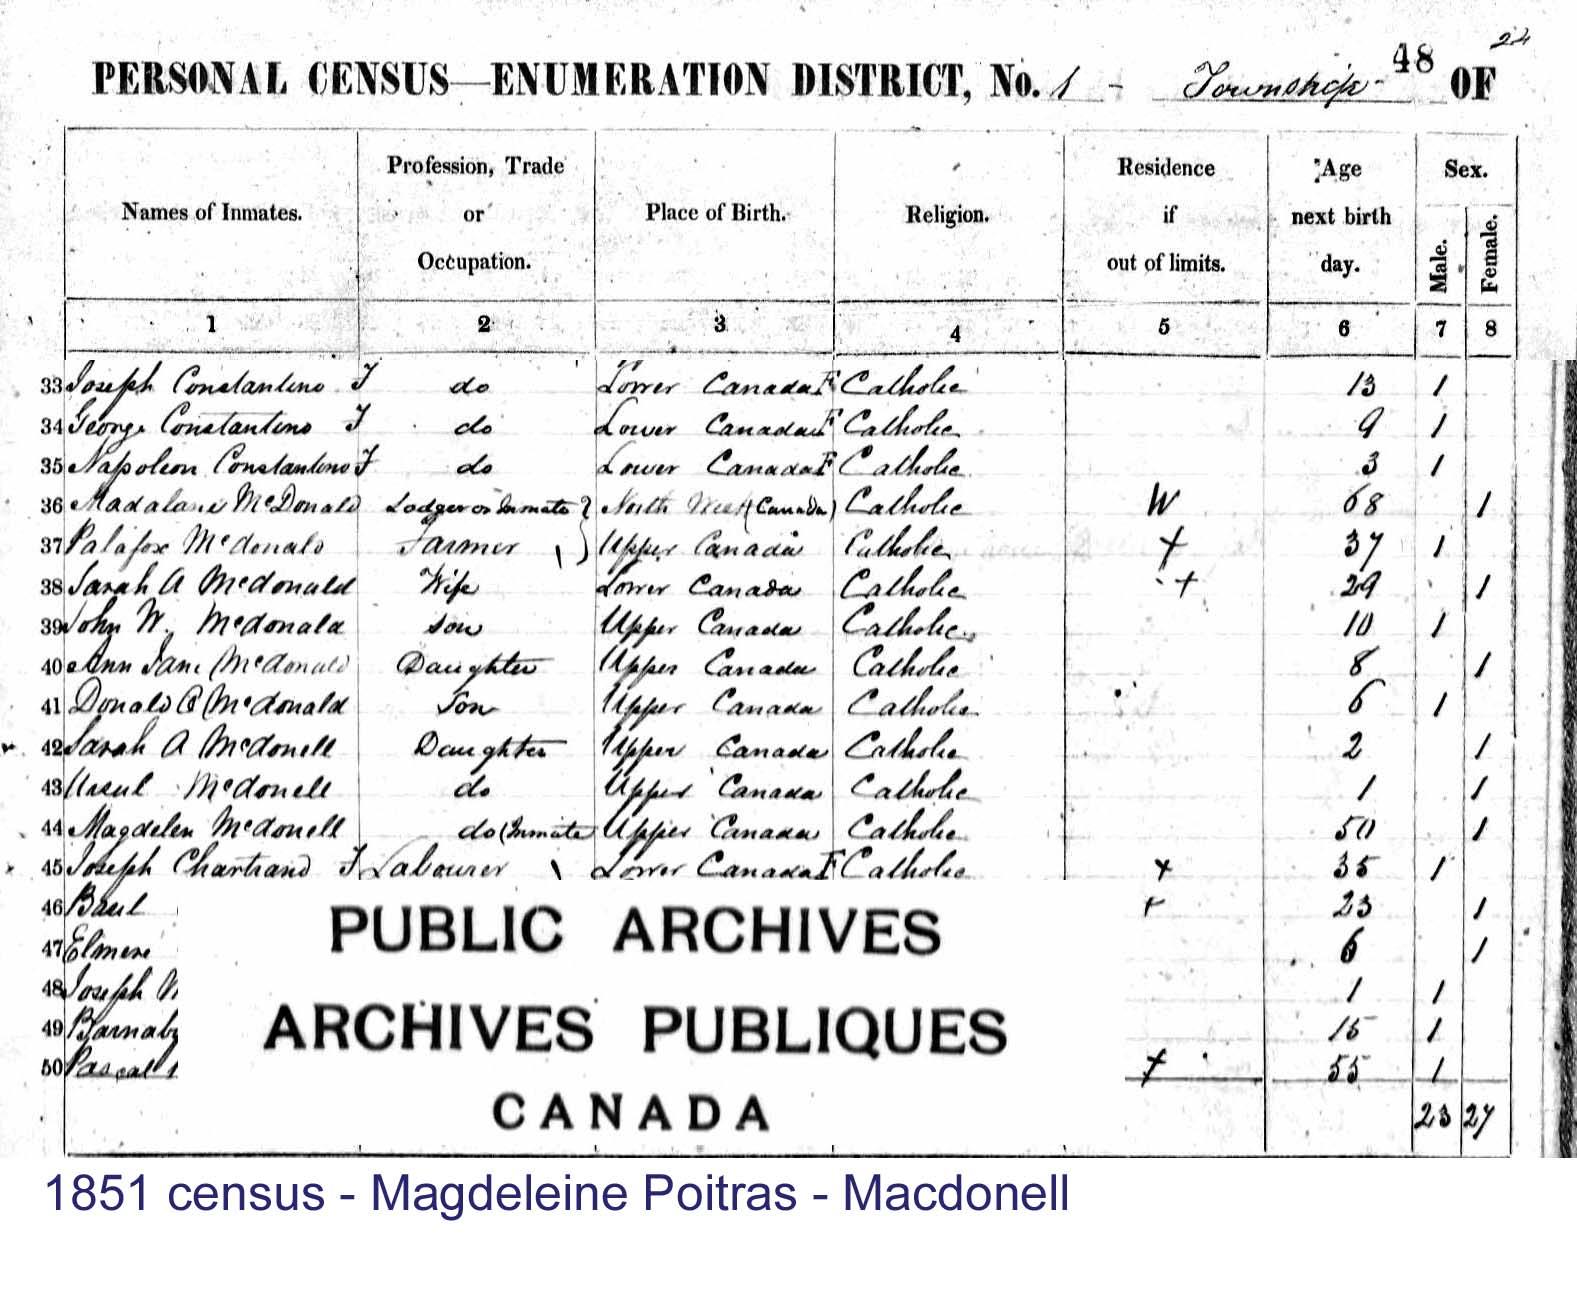 24
PERSONAL CENSUS—ENUMERATION DISTRICT, No. 1 - Township 48 OF
Names of Inmates. Profession, Trade or Occupation. Place of Birth. Religion. Residence if out of limits. Age next birth day. Sex. Male. Female.
1 2 3 4 5 6 7 8
33 Joseph Constantino F do Lower Canada F Catholic 13 1
34 George Constantino F do Lower Canada F Catholic 9 1
35 Napoleon Constantino F do Lower Canada F Catholic 3 1
36 Madalane McDonald Lodger or Inmate North West (Canada) Catholic W 68 1
37 Palafox Mcdonald Farmer 1 Upper Canada Catholic + 37 1
38 Sarah A Mcdonald Wife Lower Canada Catholic + 29 1
39 John W. Mcdonald Son Upper Canada Catholic 10 1
40 Ann Jane Mcdonald Daughter Upper Canada Catholic 8 1
41 Donald Mcdonald Son Upper Canada Catholic 6 1
42 Sarah A Mcdonell Daughter Upper Canada Catholic 2 1
43 Ursul Mcdonell do Upper Canada Catholic 1 1
44 Magdelen Mcdonell do (Inmate Upper Canada Catholic 50 1
45 Joseph Chartrand F Labourer 1 Lower Canada F Catholic + 35 1
46 Basil + 23 1
47 Elmere 6 1
48 Joseph 1 1
49 Barnaby 15 1
50 Pascal + 55 1
23 27
PUBLIC ARCHIVES
ARCHIVES PUBLIQUES
CANADA
1851 census - Magdeleine Poitras - Macdonell